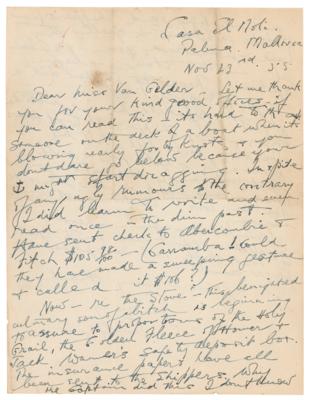 Casa El Moli
Palma, Mallorca
Nov 23rd. 35
Dear Miss Van Gelder - Let me thank
you for your kind good offices - if
you can read this - it's hard to
someone on the deck of a boat when it's
blowing nearly forty knots & you
don't dare go below because your
⚓ might start dragging. In spite
of any ugly rumours to the contrary
I did learn to write and even
read once - in the dim past.
Have sent check to Abercombie &
Fitch $105.90 - (Carramba! Could
they have made a sweeping gesture
& called it $106?)
Now - re the stove - This benighted
culinary son of a bitch is beginning
to assume the proportions of the Holy
Grail, the Golden Fleece of Homer &
Jack Warner's safety deposit box.
The insurance papers have all
been sent to the shippers. Why
the Captain did this I don't know